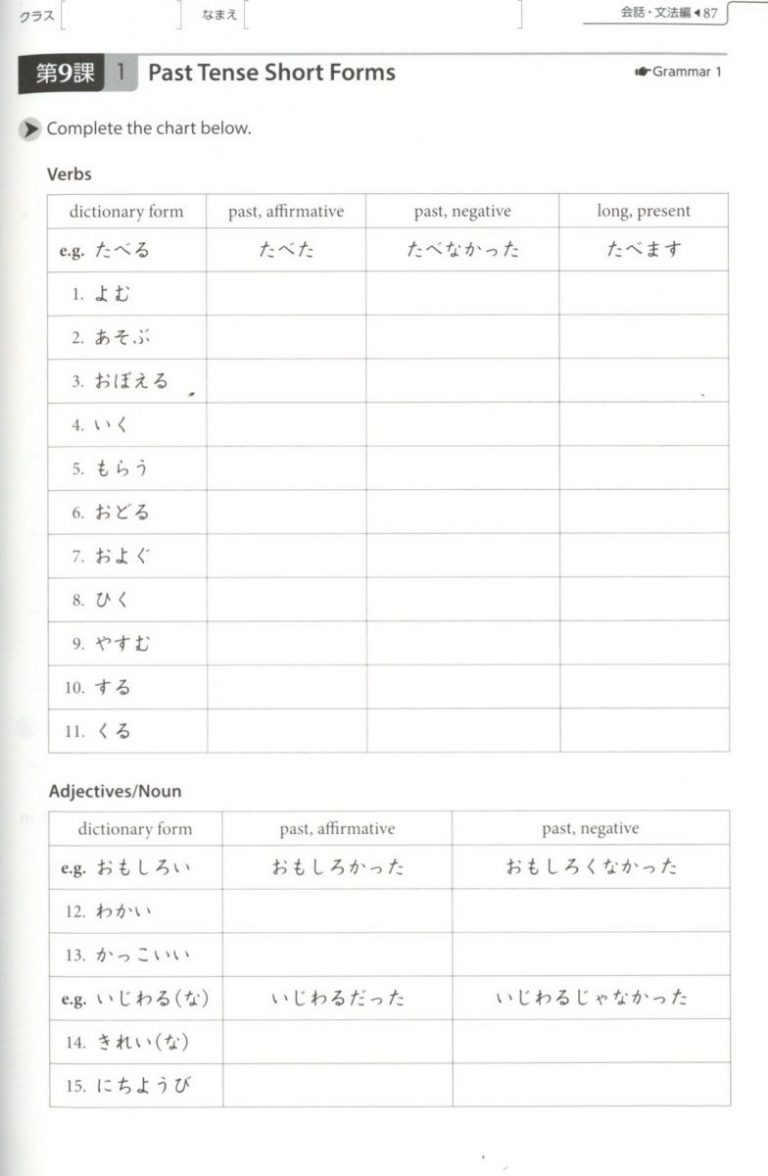 クラス なまえ 会話・文法編◀87
第9課 1 Past Tense Short Forms ☛Grammar 1
➤ Complete the chart below.
Verbs
dictionary form past, affirmative past, negative long, present
e.g. たべる たべた たべなかった たべます
1. よむ
2. あそぶ
3. おぼえる
4. いく
5. もらう
6. おどる
7. およぐ
8. ひく
9. やすむ
10. する
11. くる
Adjectives/Noun
dictionary form past, affirmative past, negative
e.g. おもしろい おもしろかった おもしろくなかった
12. わかい
13. かっこいい
e.g. いじわる(な) いじわるだった いじわるじゃなかった
14. きれい(な)
15. にちようび